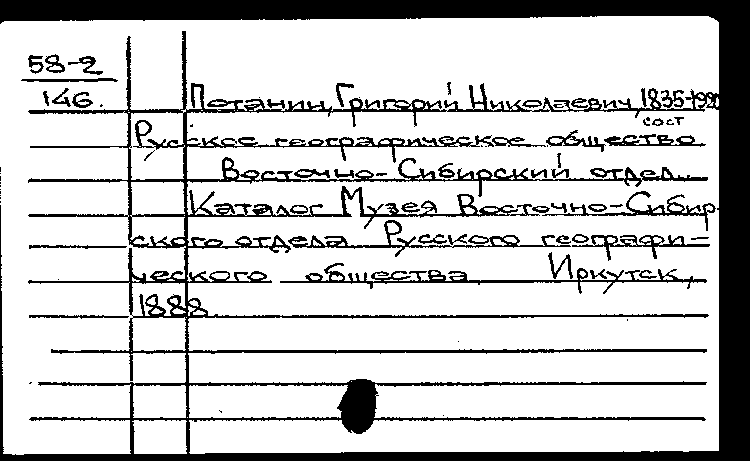 58-2
146.
Потанин, Григорий Николаевич, 1835-1920
сост
Русское географическое общество
Восточно-Сибирский отдел.
Каталог Музея Восточно-Сибир-
ского отдела Русского географи-
ческого общества Иркутск,
1888.